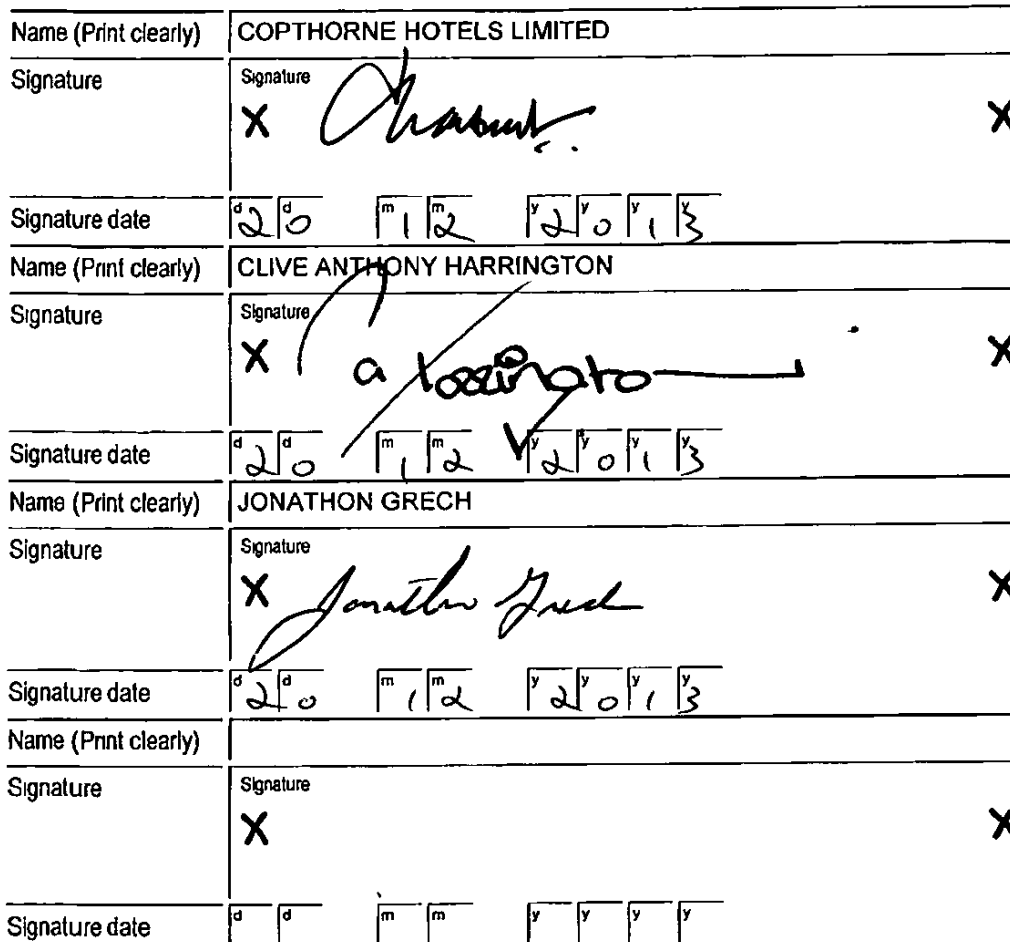 Name (Print clearly) COPTHORNE HOTELS LIMITED
Signature Signature
X X
Signature date d2 d0 m1 m2 y2 y0 y1 y3
Name (Print clearly) CLIVE ANTHONY HARRINGTON
Signature Signature
X X
Signature date d2 d0 m1 m2 y2 y0 y1 y3
Name (Print clearly) JONATHON GRECH
Signature Signature
X Jonathon Grech X
Signature date d2 d0 m1 m2 y2 y0 y1 y3
Name (Print clearly)
Signature Signature
X X
Signature date d d m m y y y y